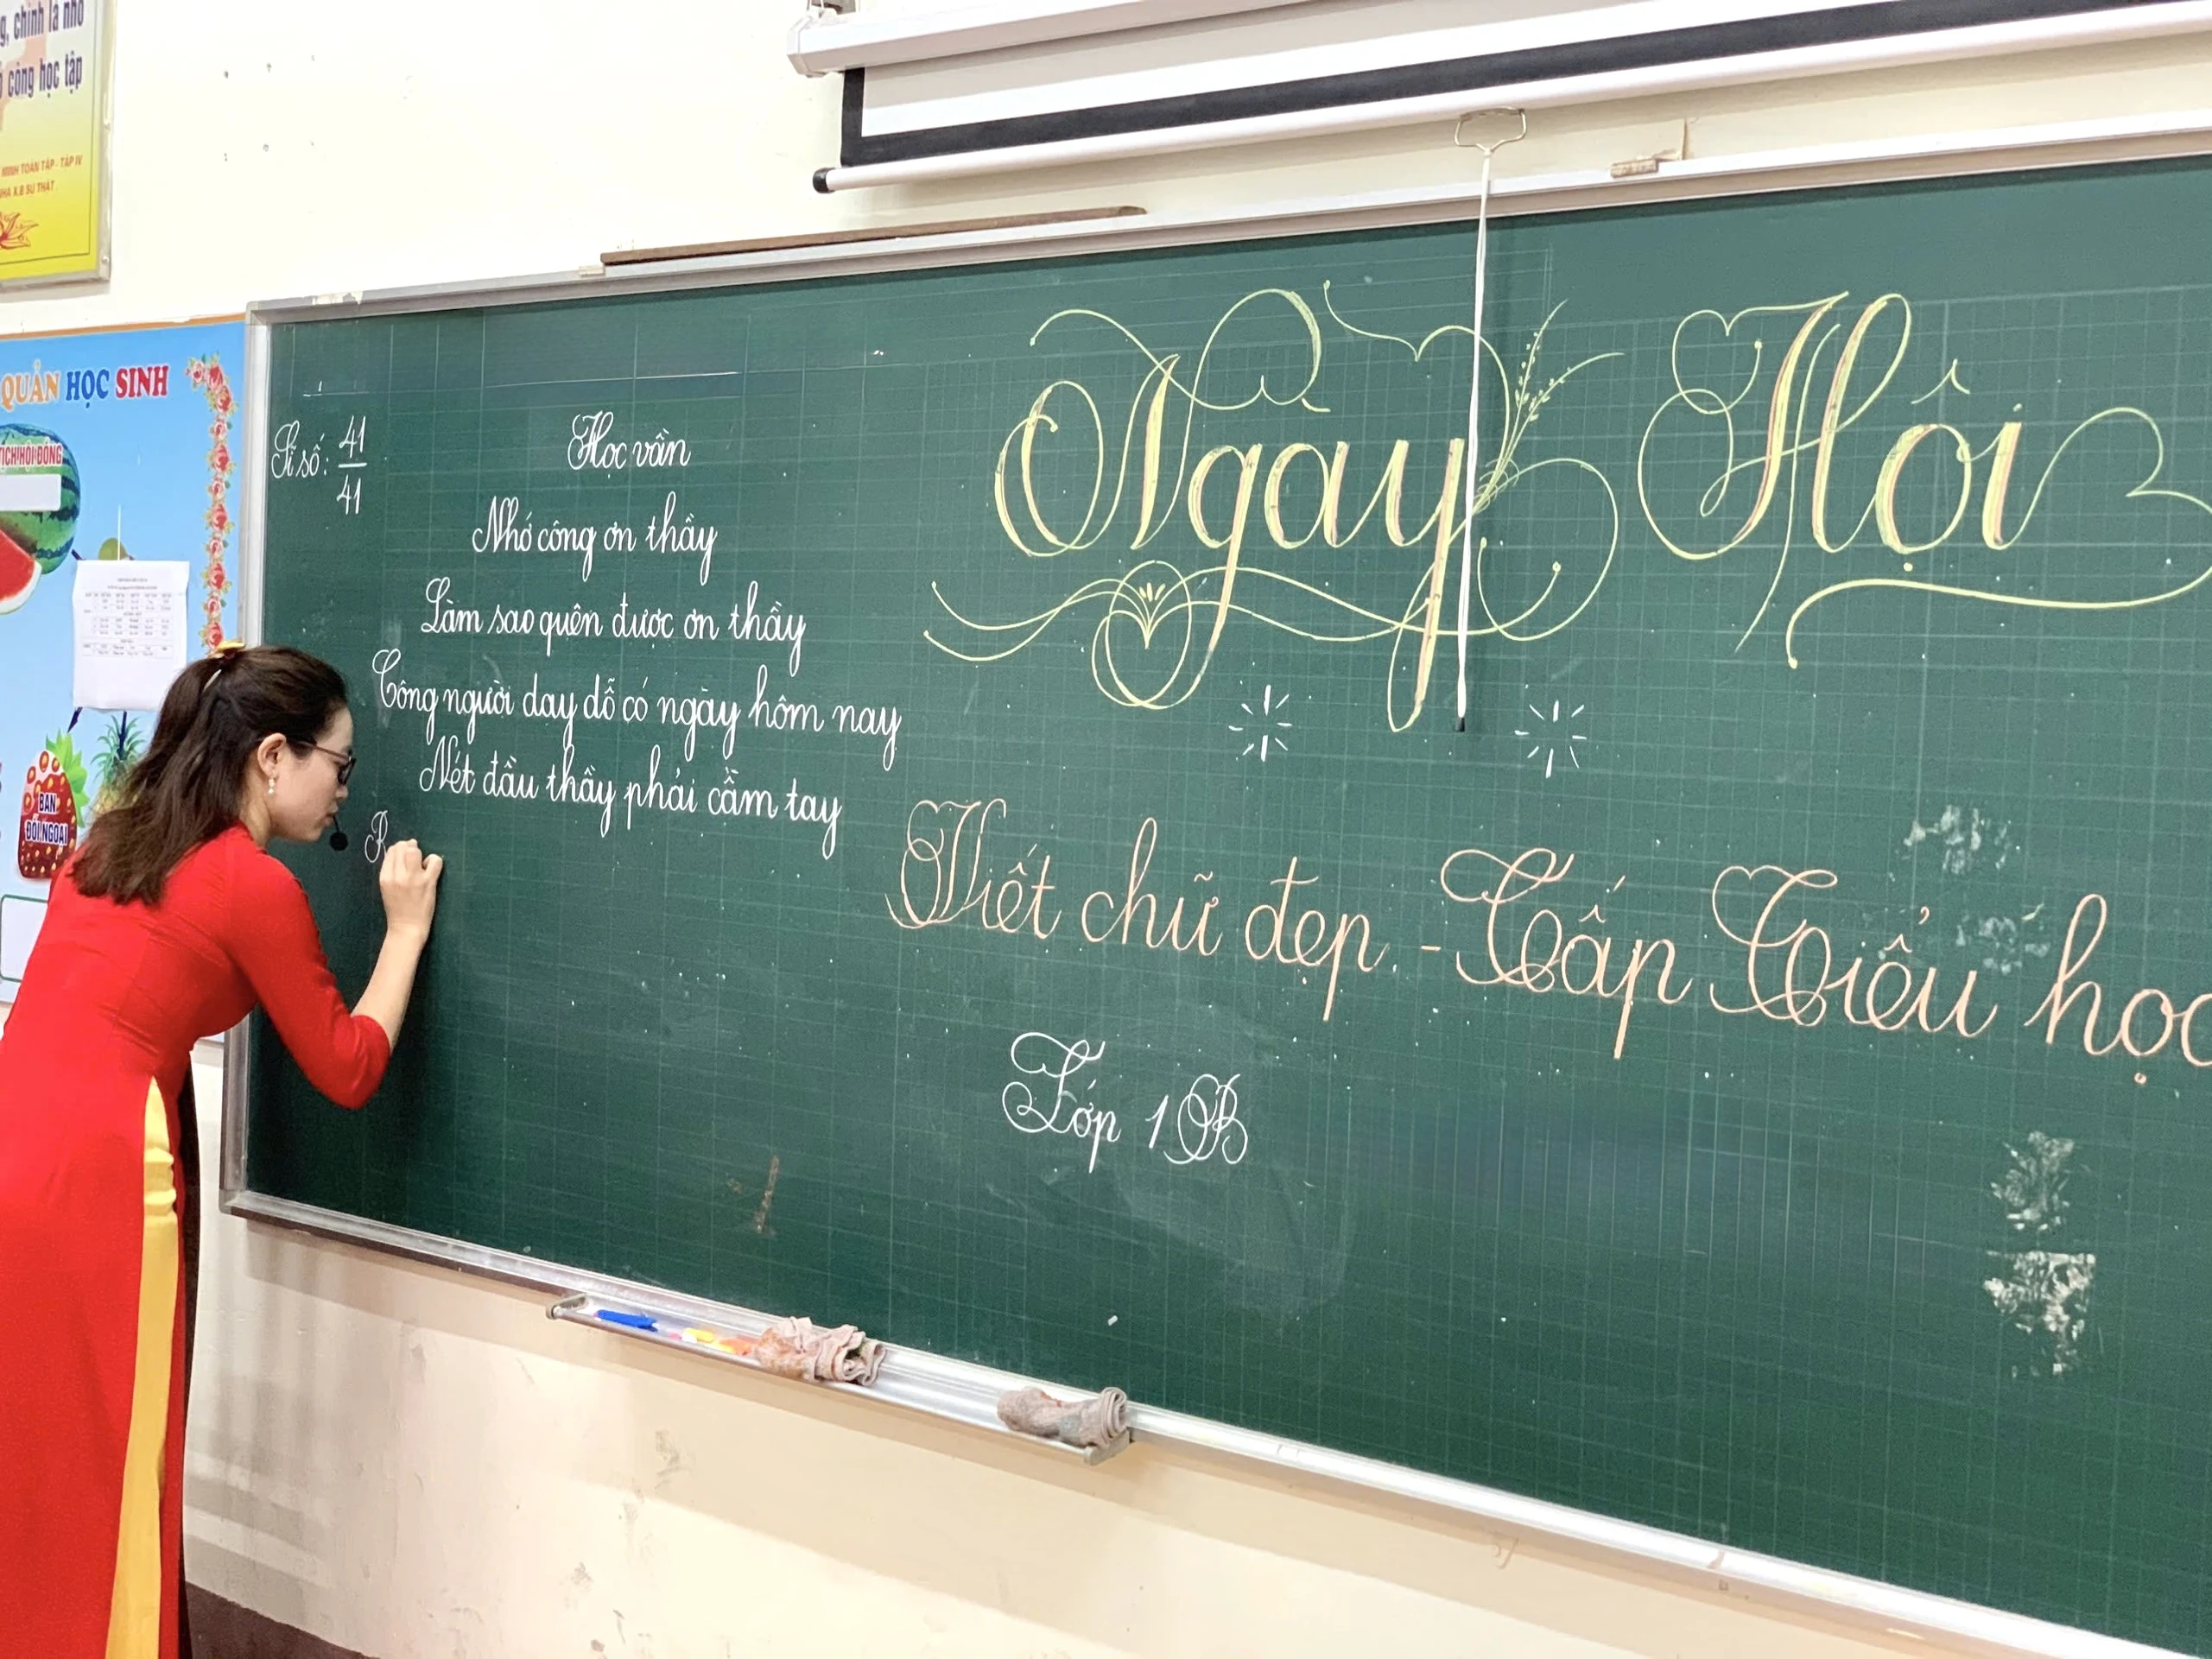 g, chính là nhờ
công học tập
MINH TOÀN TẬP - TẬP IV
NHÀ X.B SỰ THẬT
QUẢN HỌC SINH
TỊCH HỘI ĐỒNG
BAN
ĐỐI NGOẠI
Sĩ số: 41
41
Học vần
Nhớ công ơn thầy
Làm sao quên được ơn thầy
Công người dạy dỗ có ngày hôm nay
Nét đầu thầy phải cầm tay
R
Ngày Hội
Viết chữ đẹp - Cấp Tiểu học
Lớp 1B